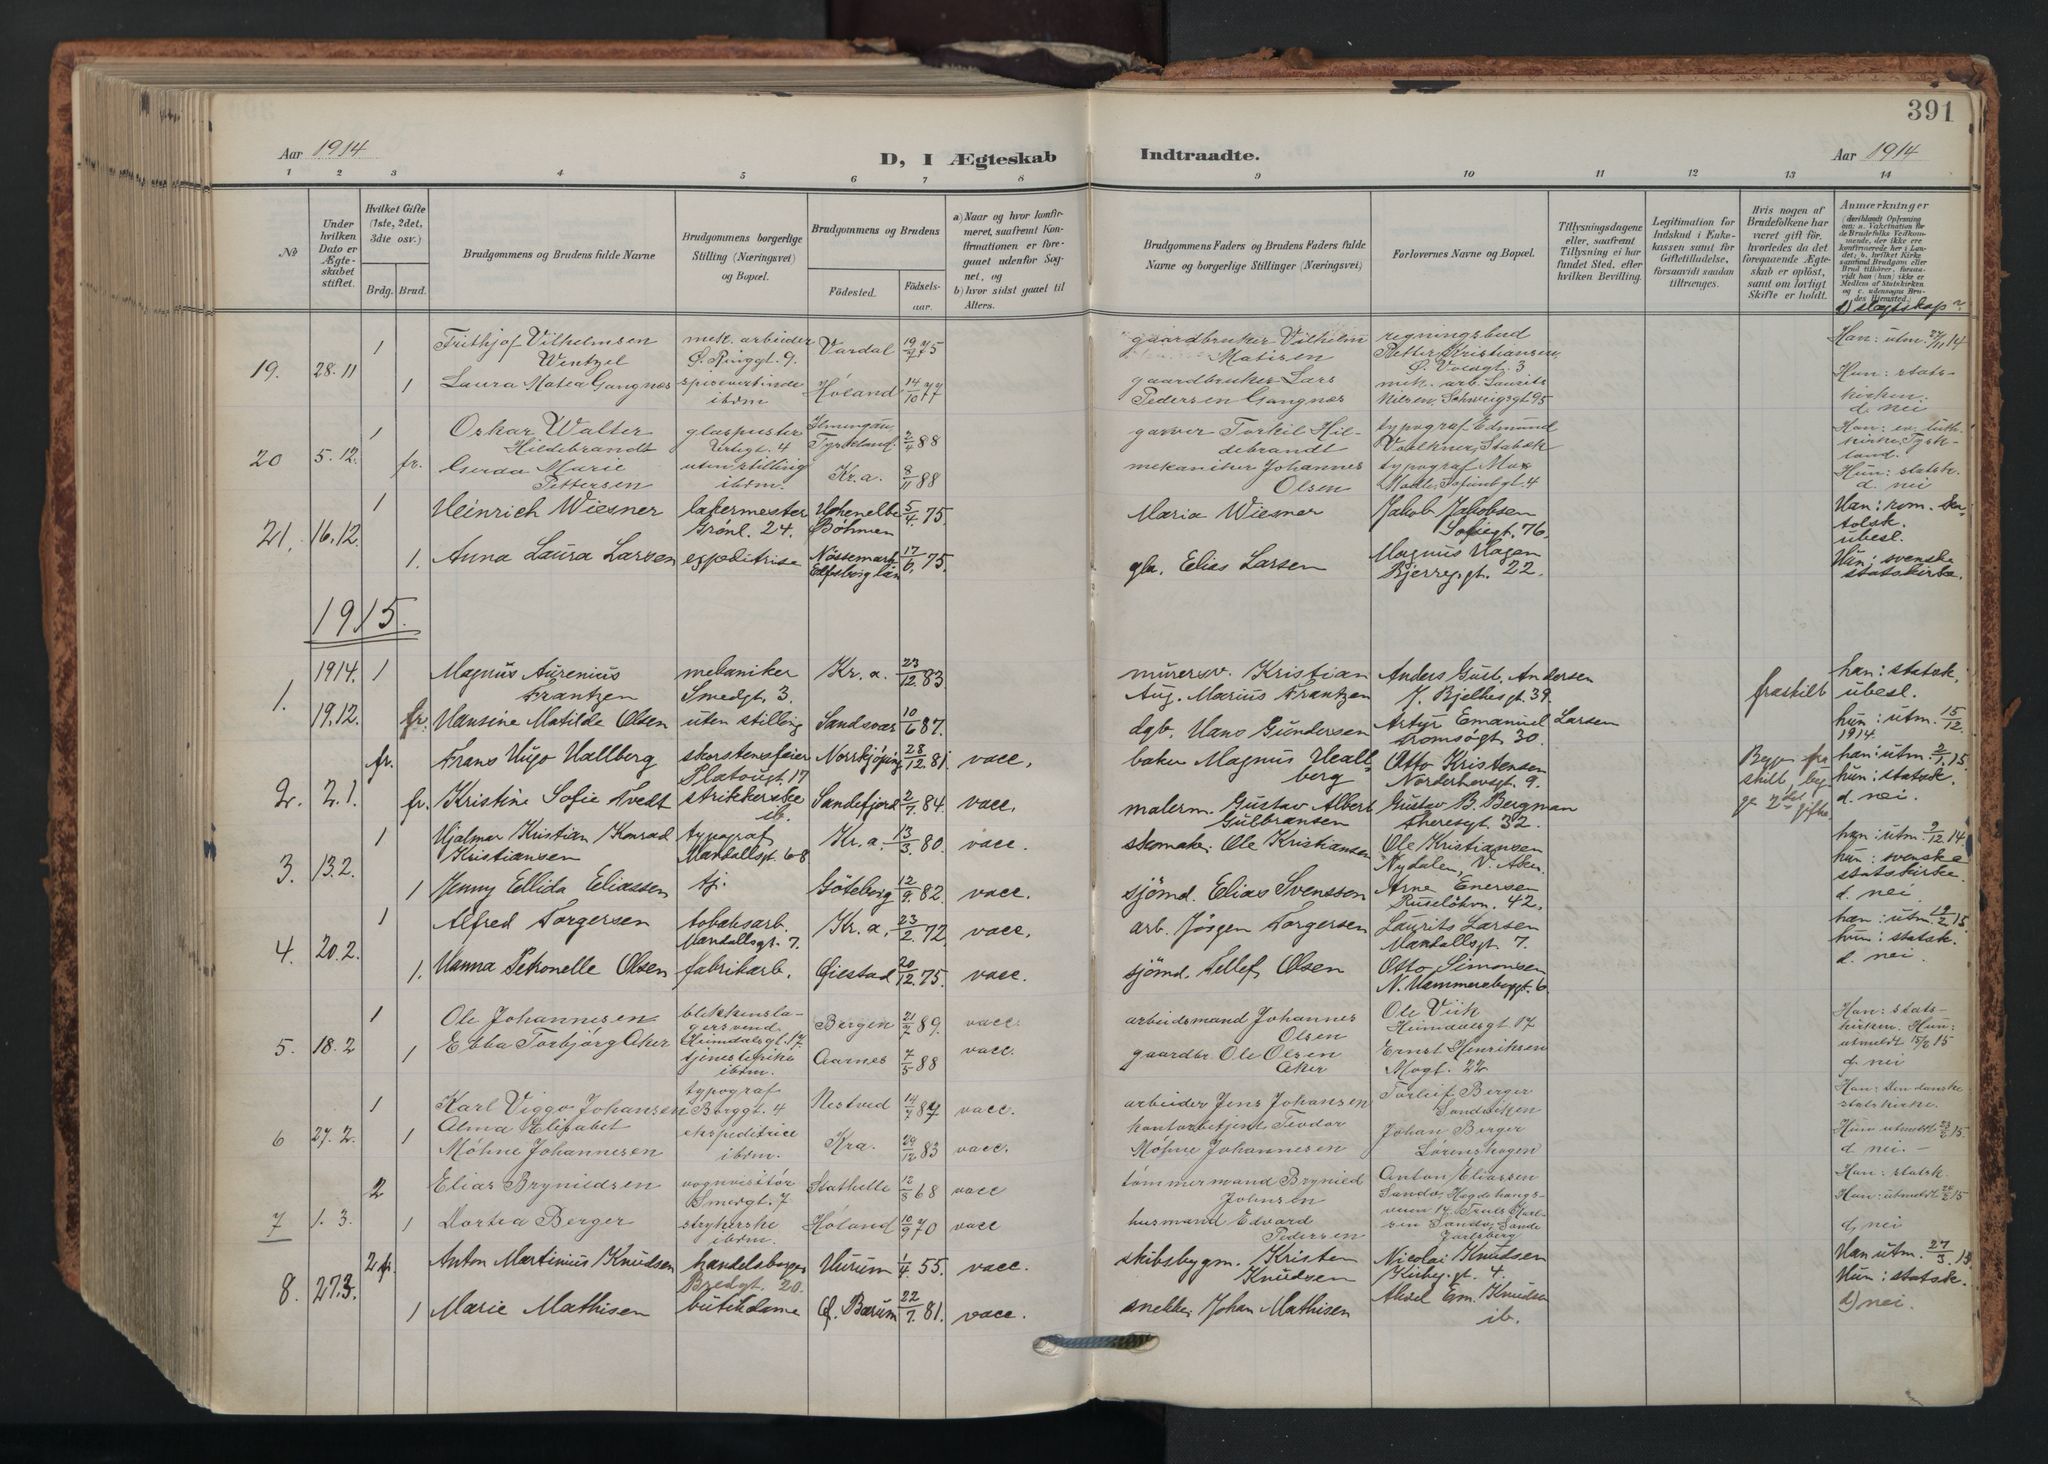 391
Aar 1914
D, I Ægteskab
Indtraadte.
Aar 1914
1 2 3 4 5 6 7 8 9 10 11 12 13 14
№
Under hvilken Dato er Ægteskabet stiftet.
Hvilket Gifte (1ste, 2det, 3die osv.)
Brdg. Brud.
Brudgommens og Brudens fulde Navne
Brudgommens borgerlige Stilling (Næringsvei) og Bopæl.
Brudgommens og Brudens
Födested.
Födselsaar.
a) Naar og hvor konfirmeret, saafremt Konfirmationen er foregaaet udenfor Sognet, og
b) hvor sidst gaaet til Alters.
Brudgommens Faders og Brudens Faders fulde Navne og borgerlige Stillinger (Næringsvei)
Forlovernes Navne og Bopæl.
Tillysningsdagene eller, saafremt Tillysning ei har fundet Sted, efter hvilken Bevilling.
Legitimation for Indskud i Enkekassen samt for Giftetilladelse, forsaavidt saadan tiltrænges.
Hvis nogen af Brudefolkene har været gift för, hvorledes da det foregaaende Ægteskab er oplöst, samt om lovligt Skifte er holdt.
Anmærkninger
(deriblandt Oplysning om: a. Vakcination for de Brudefolks Vedkommende, der ikke ere konfirmerede her i Landet; b. hvilket Kirkesamfund Brudgom eller Brud tilhörer, forsaavidt han (hun) ikke er Medlem af Statskirken og c. udensogns Brudes Hjemsted.)
d) slægtskap?
19. 28.11
1 Frithjof Vilhelmsen
Wentzel
mek. arbeider
Ø. Ringgt. 9.
Vardal 19/7 75
gaardbruker Vilhelm
Matisen
regningsbud
Petter Kristiansen,
Ø. Voldgt. 3
Han: utm. 27/11 14
1 Laura Matea Gangnæs
spisevertinde
ibdm
Høland 14/10 77
gaardbruker Lars
Pedersen Gangnæs
mek. arb. Laurits
Nilsen, Schweigsgt 95
Hun: stats-
kirken.
d. nei
20 5.12.
1 Oskar Walter
Hildebrandt
glaspuster
Urtegt. 4
Ilmengau,
Tyskland 2/4 88
garver Torkil Hil-
debrandt
typograf Edmund
Volkner, Stabæk
Han: ev. luth.
kirke, Tysk-
land.
fr. Gerda Marie
Pettersen
uten stilling
ibdm.
Kr.a. 8/11 88
mekaniker Johannes
Olsen
typograf Max
Modle, Sofienbgt. 4
Hun: statsk.
d. nei
21. 16.12.
1 Heinrich Wiesner
lakermester
Grønl. 24.
Hohenelbe
Bøhmen 5/4 75.
Maria Wiesner
Jakob Jakobsen
Sofiegt. 76.
Han: rom. ka-
tolsk.
ubesl.
1. Anna Laura Larsen
expeditrise
Nössemark
Elfsborg län 17/6 75.
gbr. Elias Larsen
Magnus Hagen
Bjerreg.gt. 22.
Hun: svenske
statskirke.
1915.
1. 1914. 19.12.
1 Magnus Aurenius
Frantzen
mekaniker
Smedgt. 3.
Kr. a. 23/12 83.
murersv. Kristian
Aug. Marius Frantzen
Anders Gust. Andersen
J. Bjelkesgt. 39.
fraskilt
han: statsk,
ubesl.
fr. Hansine Matilde Olsen
uten stilling
Sandsvær 10/6 87.
dgb. Hans Gundersen
Artur Emanuel Larsen
Tromsøgt. 30.
hun: utm. 15/12.
1914.
2. 2.1.
fr. Frans Hugo Hallberg
skorstensfeier
Platougt. 17
Norrkjøping 28/12. 81.
vacc.
baker Magnus Hall-
berg
Otto Kristensen
Norderhovsgt. 9.
Begge fra
skilt, beg
ge 2det gifte
han: utm. 2/1. 15.
hun: statsk.
d. nei.
fr. Kristine Sofie Tvedt
strikkerske
ib.
Sandefjord 2/7. 84.
vacc.
malerm. Gustav Albert
Gulbransen
Gustav B. Bergman
Theresgt. 32.
3. 13.2.
1 Hjalmar Kristian Konrad
Kristiansen
typograf
Mandallsgt. 68
Kr. a. 13/3. 80.
vacc.
skomaker Ole Kristiansen
Ole Kristiansen
Nydalen, V. Aker.
han: utm. 9/12. 14.
hun: svenske
statskirke.
d. nei
1 Jenny Ellida Eliassen
tj.
Göteborg 12/9. 82.
vacc.
sjömd. Elias Svensson
Arne Enersen
Ruseløkvn. 42.
4. 20.2.
1 Alfred Torgersen
tobaksarb.
Mandallsgt. 7.
Kr. a. 23/2. 72.
vacc.
arb. Jörgen Torgersen
Laurits Larsen
Mandallsgt. 7.
han: utm. 19/2. 15.
hun: statsk.
d. nei.
1. Hanna Petronelle Olsen
fabrikarb.
Øiestad 20/12. 75.
vacc.
sjömd. Tellef Olsen
Otto Simonsen
N. Hammersborggt. 6.
5. 18.2
1 Ole Johannesen
blikkensla-
gersvend
Heimdalsgt. 17.
Bergen 21/7 89.
vacc.
arbeidsmand Johannes
Olsen
Ole Viik
Heimdalsgt. 17
Han: stats-
kirken. Hun:
utmeldt 15/2 15
d. nei
1 Ebba Torbjørg Aker
tjenestepike
ibdm.
Aarnes 7/5 88
vacc.
gaardbr. Ole Olsen
Aker
Ernst Henriksen
Mogt. 22
6 27.2.
1 Karl Viggo Johansen
typograf
Borggt. 4
Nestved 14/7 87
vacc.
arbeider Jens Johansen
Torleif Berger
Sandviken
Han: Den danske
statskirke.
1 Alma Elisabet
Møhne Johannesen
ekspeditrice
ibdm.
Kra. 29/12 83
vacc.
kontorbetjent Teodor
Møhne Johannesen
Johan Berger
Lørenskogen
Hun utmeldt 23/2 15.
d nei.
7 1.3.
2 Elias Brynildsen
vognvisitør
Smedgt. 7
Stathelle 12/8 68
vacc
tømmermand Brynild
Johnsen
Anton Eliassen
Sandø, Hagdehaugs-
veien 14, Truls Karl-
sen Sandø, Sande
Jarlsberg
Han: statsk.
Hun: utmeldt 24/2 15
d, nei
1 Dortea Berger
strykerske
ibdm.
Høland 10/9 70
vacc
husmand Edvard
Pedersen
8. 27.3.
2 fr. Anton Martinius Knudsen
handelsborger
Bredgt. 20.
Hurum 1/4. 55.
vacc.
skibsbygm. Kristen
Knudsen
Nicolai Knudsen
Kirkeg.gt. 4.
Han utm. 27/3. 15
Hun: statsk.
d) nei.
1 Marie Mathisen
butikdame
Ø. Bærum 22/7. 81.
vacc.
snekker Johan Mathisen
Alvel Em. Knudsen
ib.